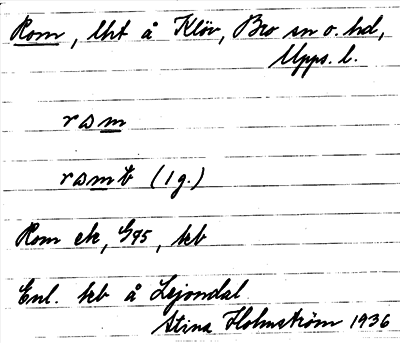 Rom, lht å Klöv, Bro sn o. hd,
Upps. l.
rɷm
rɷmt (1 g.)
Rom ek, G95, kb
Enl. kb å Lejondal
Stina Holmström 1936